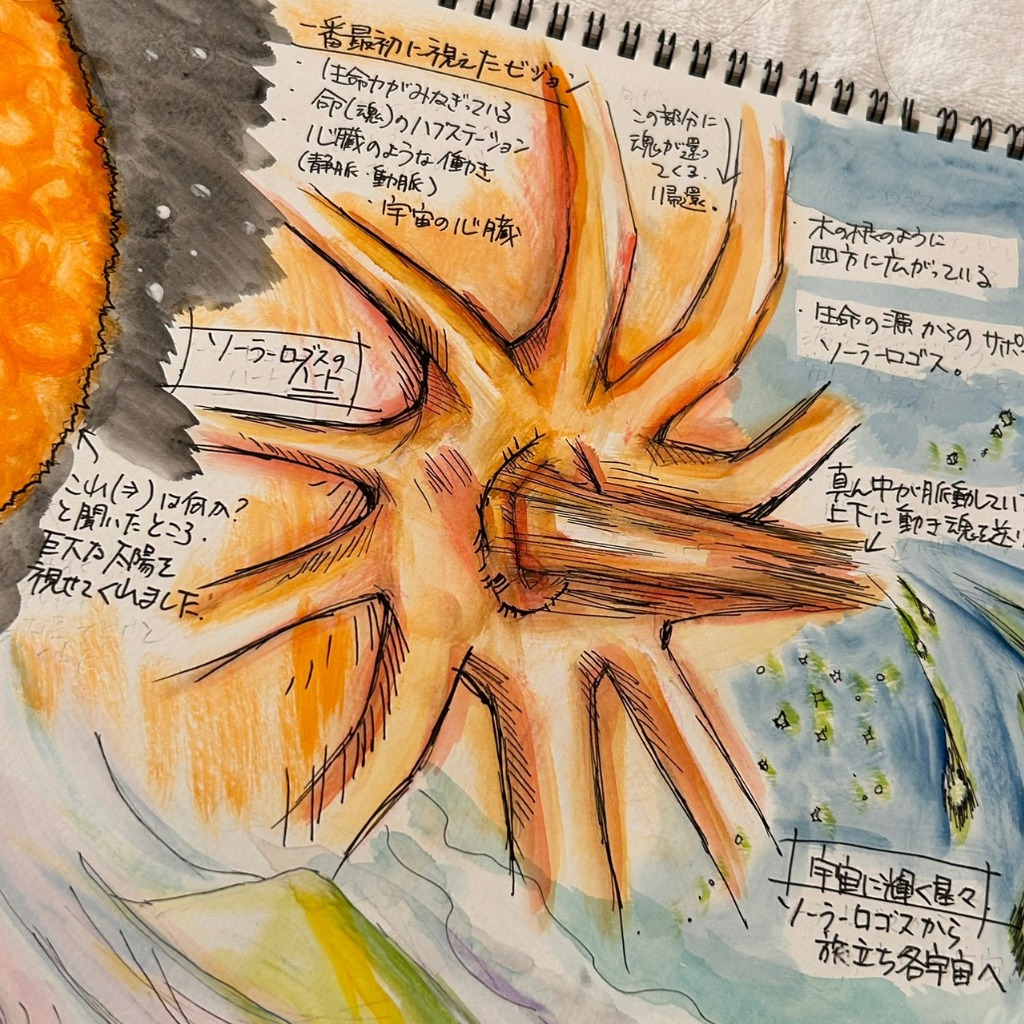 一番最初に視えたビジョン
・生命力がみなぎっている
・命(魂)のハブステーション
心臓のような働き
(静脈・動脈)
・宇宙の心臓
この部分に
魂が還っ
てくる.
帰還。
・木の根のように
四方に広がっている
・生命の源からのサポ
ソーラーロゴス。
ソーラーロゴスの
ハート
これ(⇒)は何か?
と聞いたところ.
巨大な太陽を
視せてくれました.
真ん中が脈動してい
上下に動き魂を送り
宇宙に輝く星々
ソーラーロゴスから
旅立ち各宇宙へ